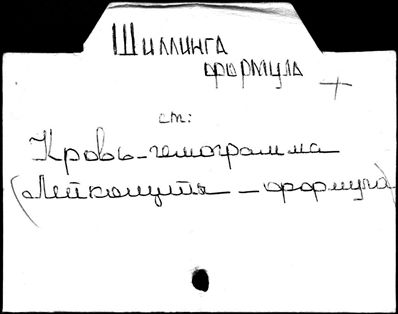 Шиллинга
формула
+
см:
Кровь-гемограмма
(Лейкоциты - формула)